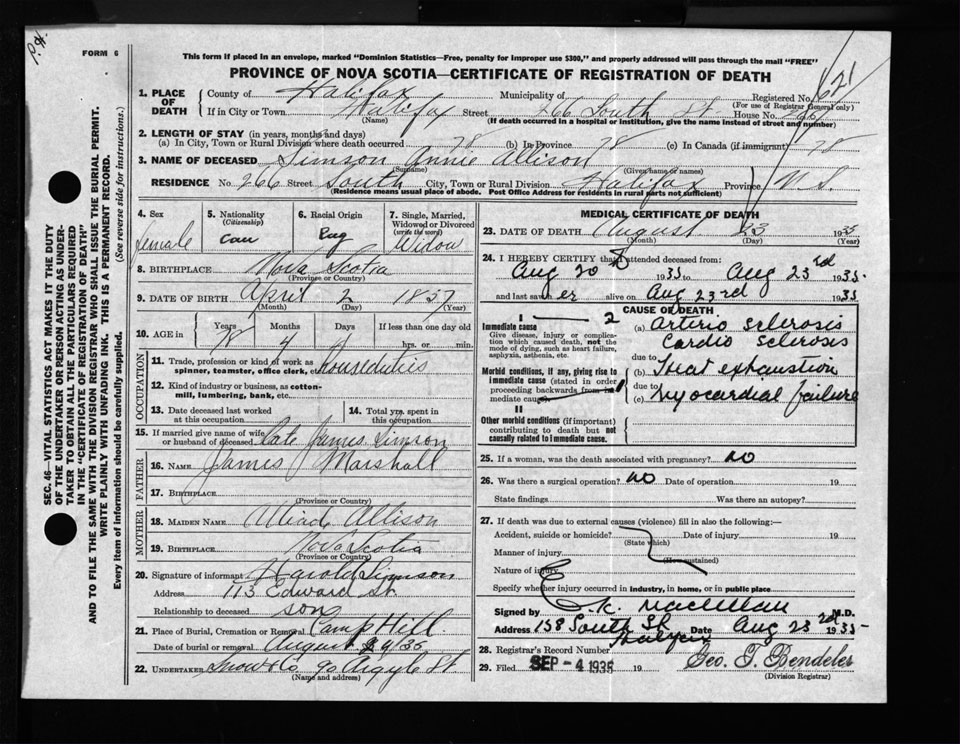 FORM 6
This form if placed in an envelope, marked "Dominion Statistics—Free, penalty for improper use $300," and properly addressed will pass through the mail "FREE"
PROVINCE OF NOVA SCOTIA—CERTIFICATE OF REGISTRATION OF DEATH
SEC. 46—VITAL STATISTICS ACT MAKES IT THE DUTY
OF THE UNDERTAKER OR PERSON ACTING AS UNDER-
TAKER TO OBTAIN ALL THE PARTICULARS REQUIRED
IN THE "CERTIFICATE OF REGISTRATION OF DEATH"
AND TO FILE THE SAME WITH THE DIVISION REGISTRAR WHO SHALL ISSUE THE BURIAL PERMIT.
WRITE PLAINLY WITH UNFADING INK. THIS IS A PERMANENT RECORD.
Every item of Information should be carefully supplied. (See reverse side for instructions.)
1. PLACE OF DEATH County of Halifax Municipality of Registered No. 621
(For use of Registrar General only)
If in City or Town Halifax Street 266 South St House No. 266
(Name) (If death occurred in a hospital or institution, give the name instead of street and number)
2. LENGTH OF STAY (in years, months and days)
(a) In City, Town or Rural Division where death occurred 78 (b) In Province 78 (c) In Canada (if immigrant) 78
3. NAME OF DECEASED Simson Annie Allison
(Surname) (Given names or name)
RESIDENCE No. 266 Street South City, Town or Rural Division Halifax Province N.S.
(Residence means usual place of abode. Post Office Address for residents in rural parts not sufficient)
4. Sex female
5. Nationality (Citizenship) Can
6. Racial Origin
7. Single, Married, Widowed or Divorced (write the word) Widow
8. BIRTHPLACE Nova Scotia
(Province or Country)
9. DATE OF BIRTH April 2 1857
(Month) (Day) (Year)
10. AGE in Years 78 Months 4 Days If less than one day old hrs. or min.
OCCUPATION
11. Trade, profession or kind of work as spinner, teamster, office clerk, etc. houseduties
12. Kind of industry or business, as cotton-mill, lumbering, bank, etc.
13. Date deceased last worked at this occupation
14. Total yrs. spent in this occupation
15. If married give name of wife or husband of deceased late James Simson
FATHER
16. NAME James Marshall
17. BIRTHPLACE
(Province or Country)
MOTHER
18. MAIDEN NAME Allison
19. BIRTHPLACE Nova Scotia
(Province or Country)
20. Signature of informant Harold Simson
Address 113 Edward St.
Relationship to deceased son
21. Place of Burial, Cremation or Removal Camp Hill
Date of burial or removal August /35
22. UNDERTAKER Snow & Co 90 Argyle St
(Name and address)
MEDICAL CERTIFICATE OF DEATH
23. DATE OF DEATH August 23 1935
(Month) (Day) (Year)
24. I HEREBY CERTIFY that I attended deceased from:
Aug 20 1935 to Aug 23rd 1935
and last saw her alive on Aug 23rd 1935
CAUSE OF DEATH
I
Immediate cause
Give disease, injury or complication which caused death, not the mode of dying, such as heart failure, asphyxia, asthenia, etc.
(a) Arterio sclerosis
Cardio sclerosis
due to
Morbid conditions, if any, giving rise to immediate cause (stated in order proceeding backwards from immediate cause)
(b) Heat exhaustion
due to
(c) Myocardial failure
II
Other morbid conditions (if important) contributing to death but not causally related to immediate cause.
25. If a woman, was the death associated with pregnancy? no
26. Was there a surgical operation? no Date of operation 19
State findings Was there an autopsy?
27. If death was due to external causes (violence) fill in also the following:—
Accident, suicide or homicide? Date of injury 19
(State which)
Manner of injury
(How sustained)
Nature of injury
Specify whether injury occurred in industry, in home, or in public place
Signed by M.D.
Address 158 South St Halifax Date Aug 23rd 1935
28. Registrar's Record Number
29. Filed SEP - 4 1935 19 Geo. T. Bendeler
(Division Registrar)